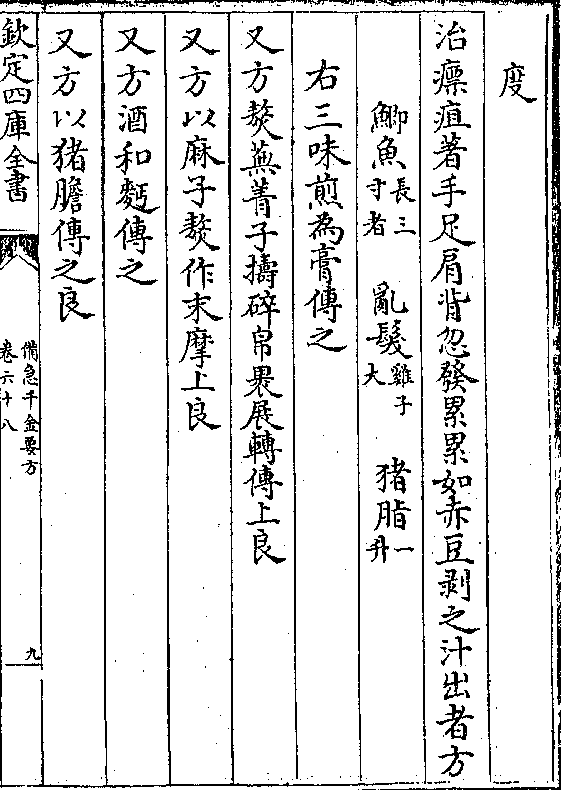 度
治瘭疽著手足肩背忽發累累如赤豆剥之汁出者方
鯽魚長三寸者 亂髮雞子大 猪脂一升
右三味煎為膏傅之
又方熬蕪菁子擣碎帛裹展轉傅上良
又方以麻子熬作末摩上良
又方酒和麪傅之
又方以猪膽傅之良
欽定四庫全書
備急千金要方
卷六十八
九